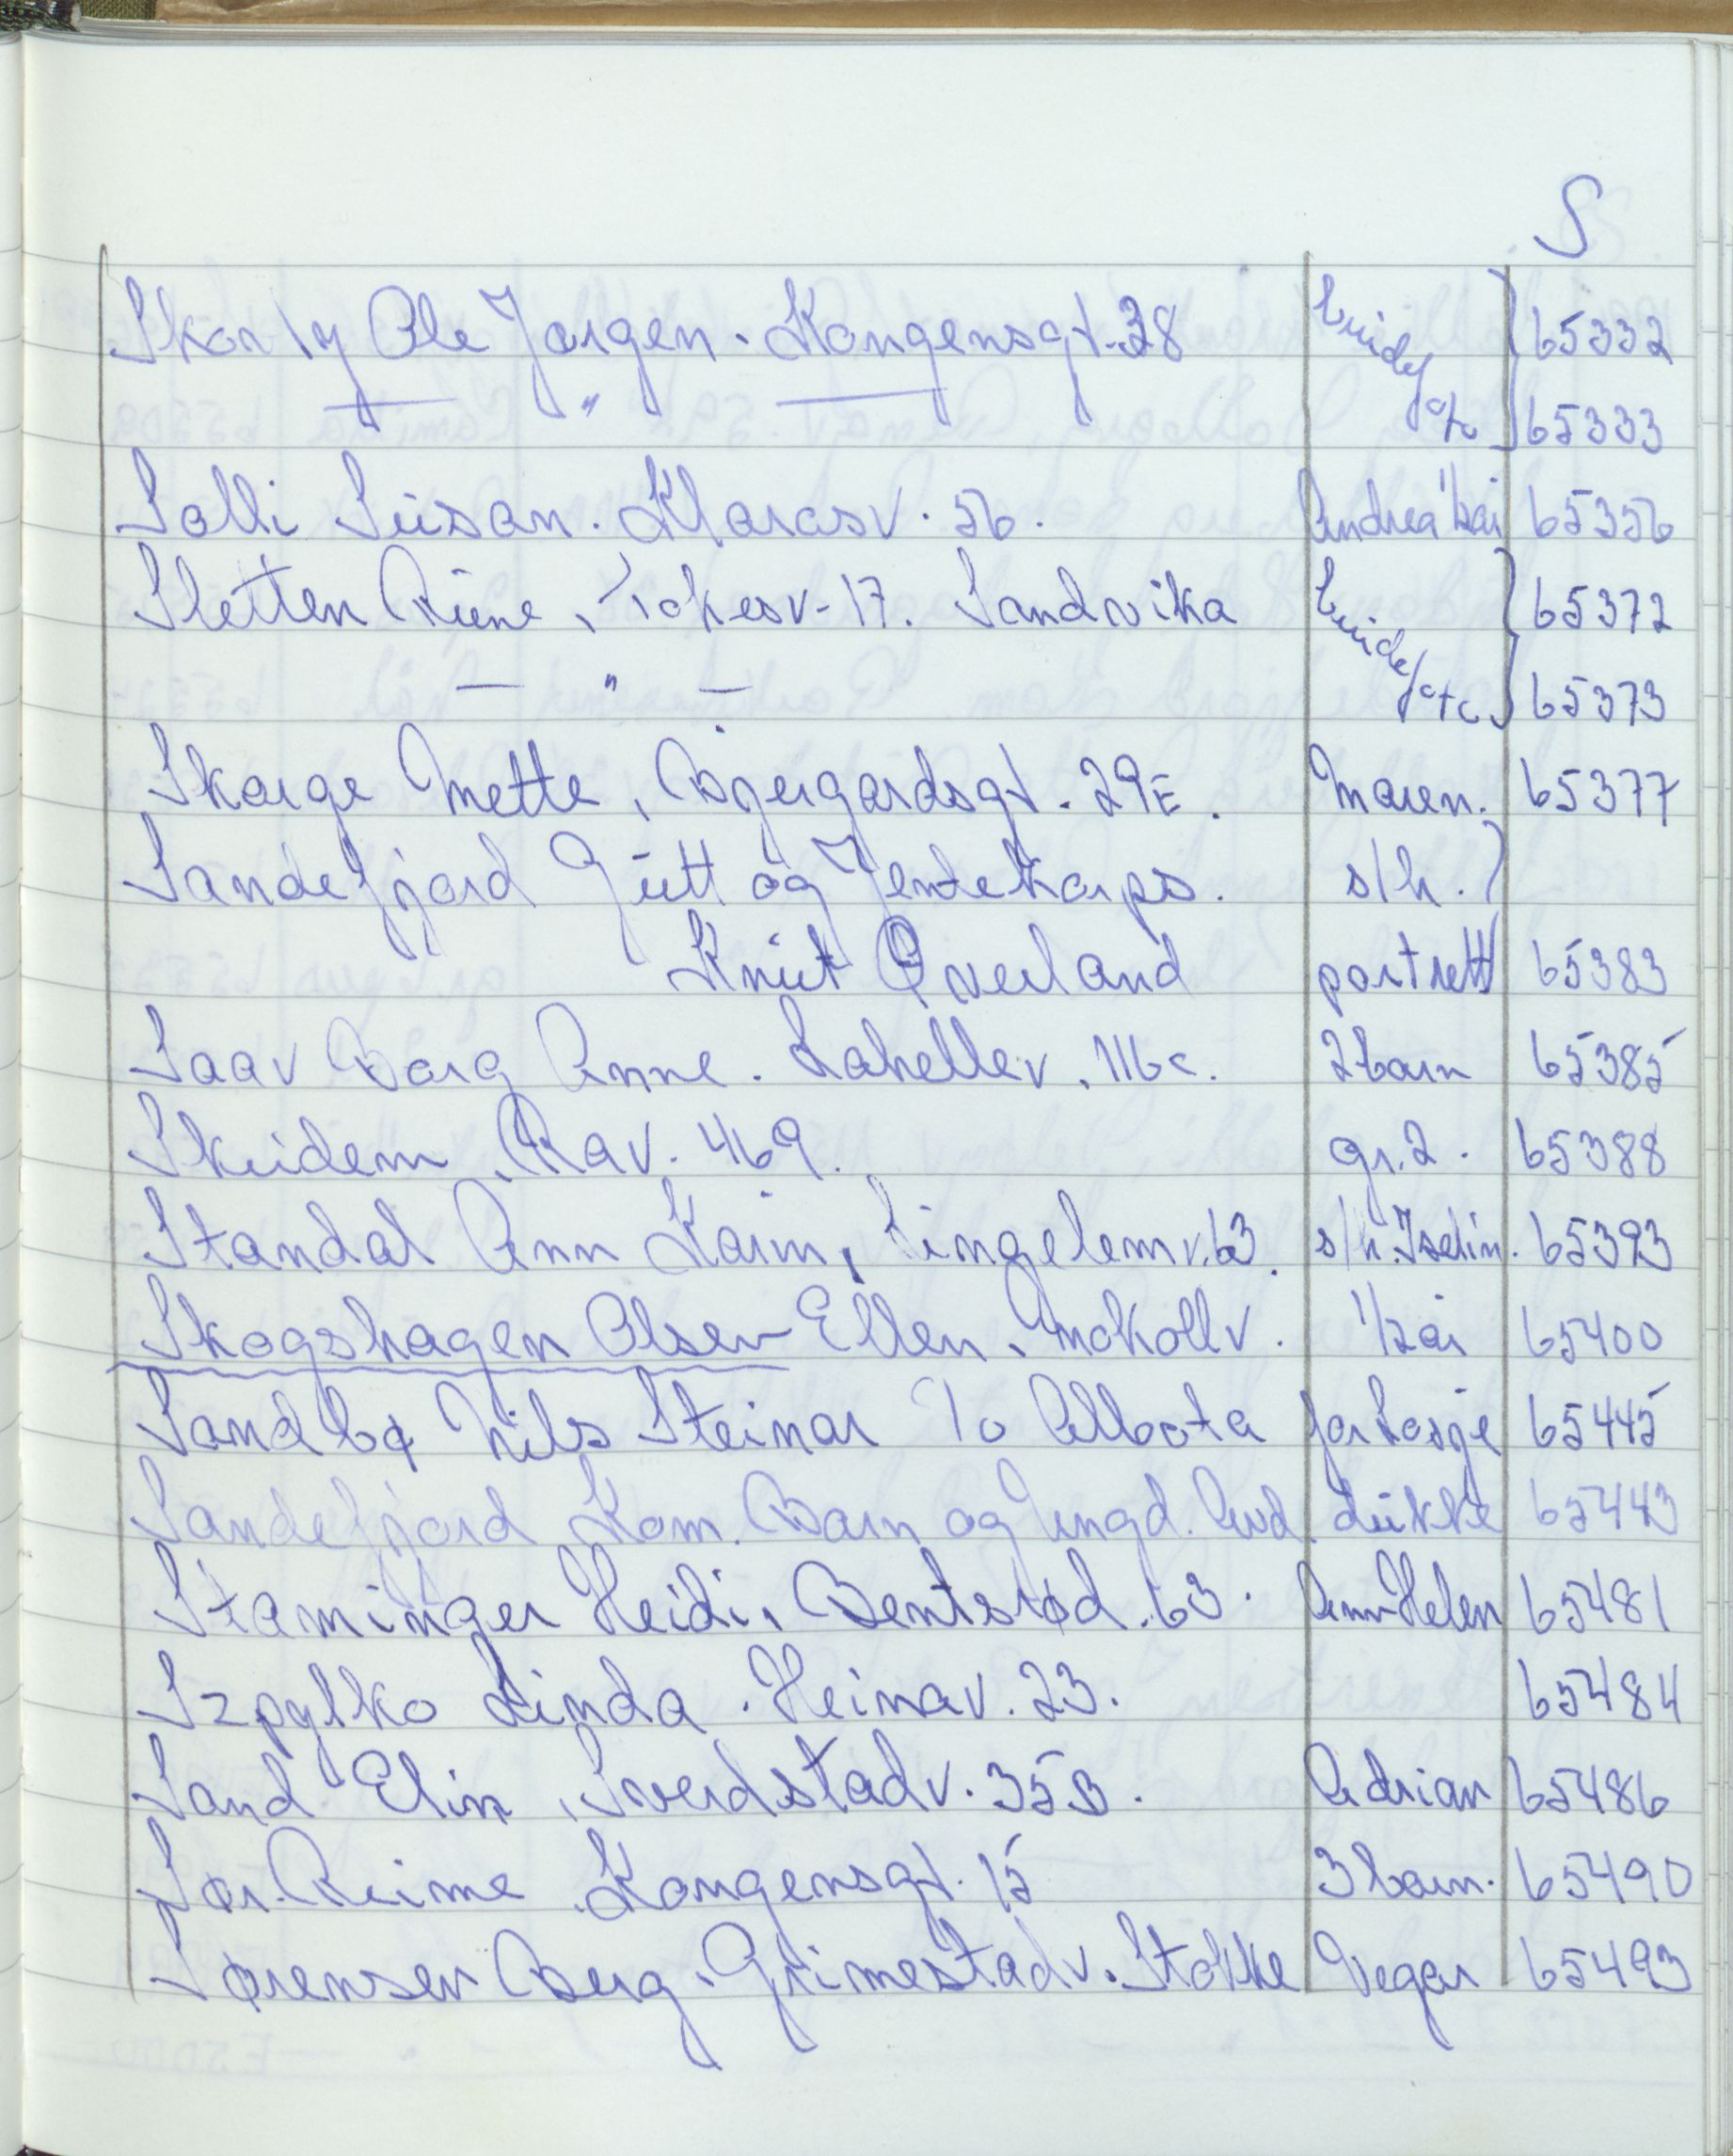 S
Skarly Ole Jørgen. Kongensgt. 38 brude/ 65332
— " — etc 65333
Solli Susan. Klarasv. 56. Andrea 1/2 år 65356
Sletten Rune, Tokesv. 17. Sandvika brude/ 65372
— " — etc 65373
Skarge Mette, Bjergardsgt. 29E. Maren. 65377
Sandefjord Gutt og Jentekorps. s/h.
Knut Øverland portrett 65383
Saav Borg Anne. Lahellev. 116c. 2 barn 65385
Skeidem, Rav. 469. gr. 2. 65388
Standal Ann Karin, Lingelemv. 63. s/h. Iselin. 65393
Skogshagen Olsen Ellen, Mokollv. 1/2 år 65400
Sandbø Nils Steinar Albota 65445
Sandefjord Kom. Barn og Ungd. Avd. dukke 65443
Staminger Heidi, Bentsrød. 63. Ann Helen 65481
Szpytko Linda. Heimav. 23. 65484
Sand Elin, Sverdstadv. 35B. Adrian 65486
Sør-Reime Kongensgt. 15 3 barn. 65490
Sørensen Berg, Grimestadv. Stokke Vegar 65493